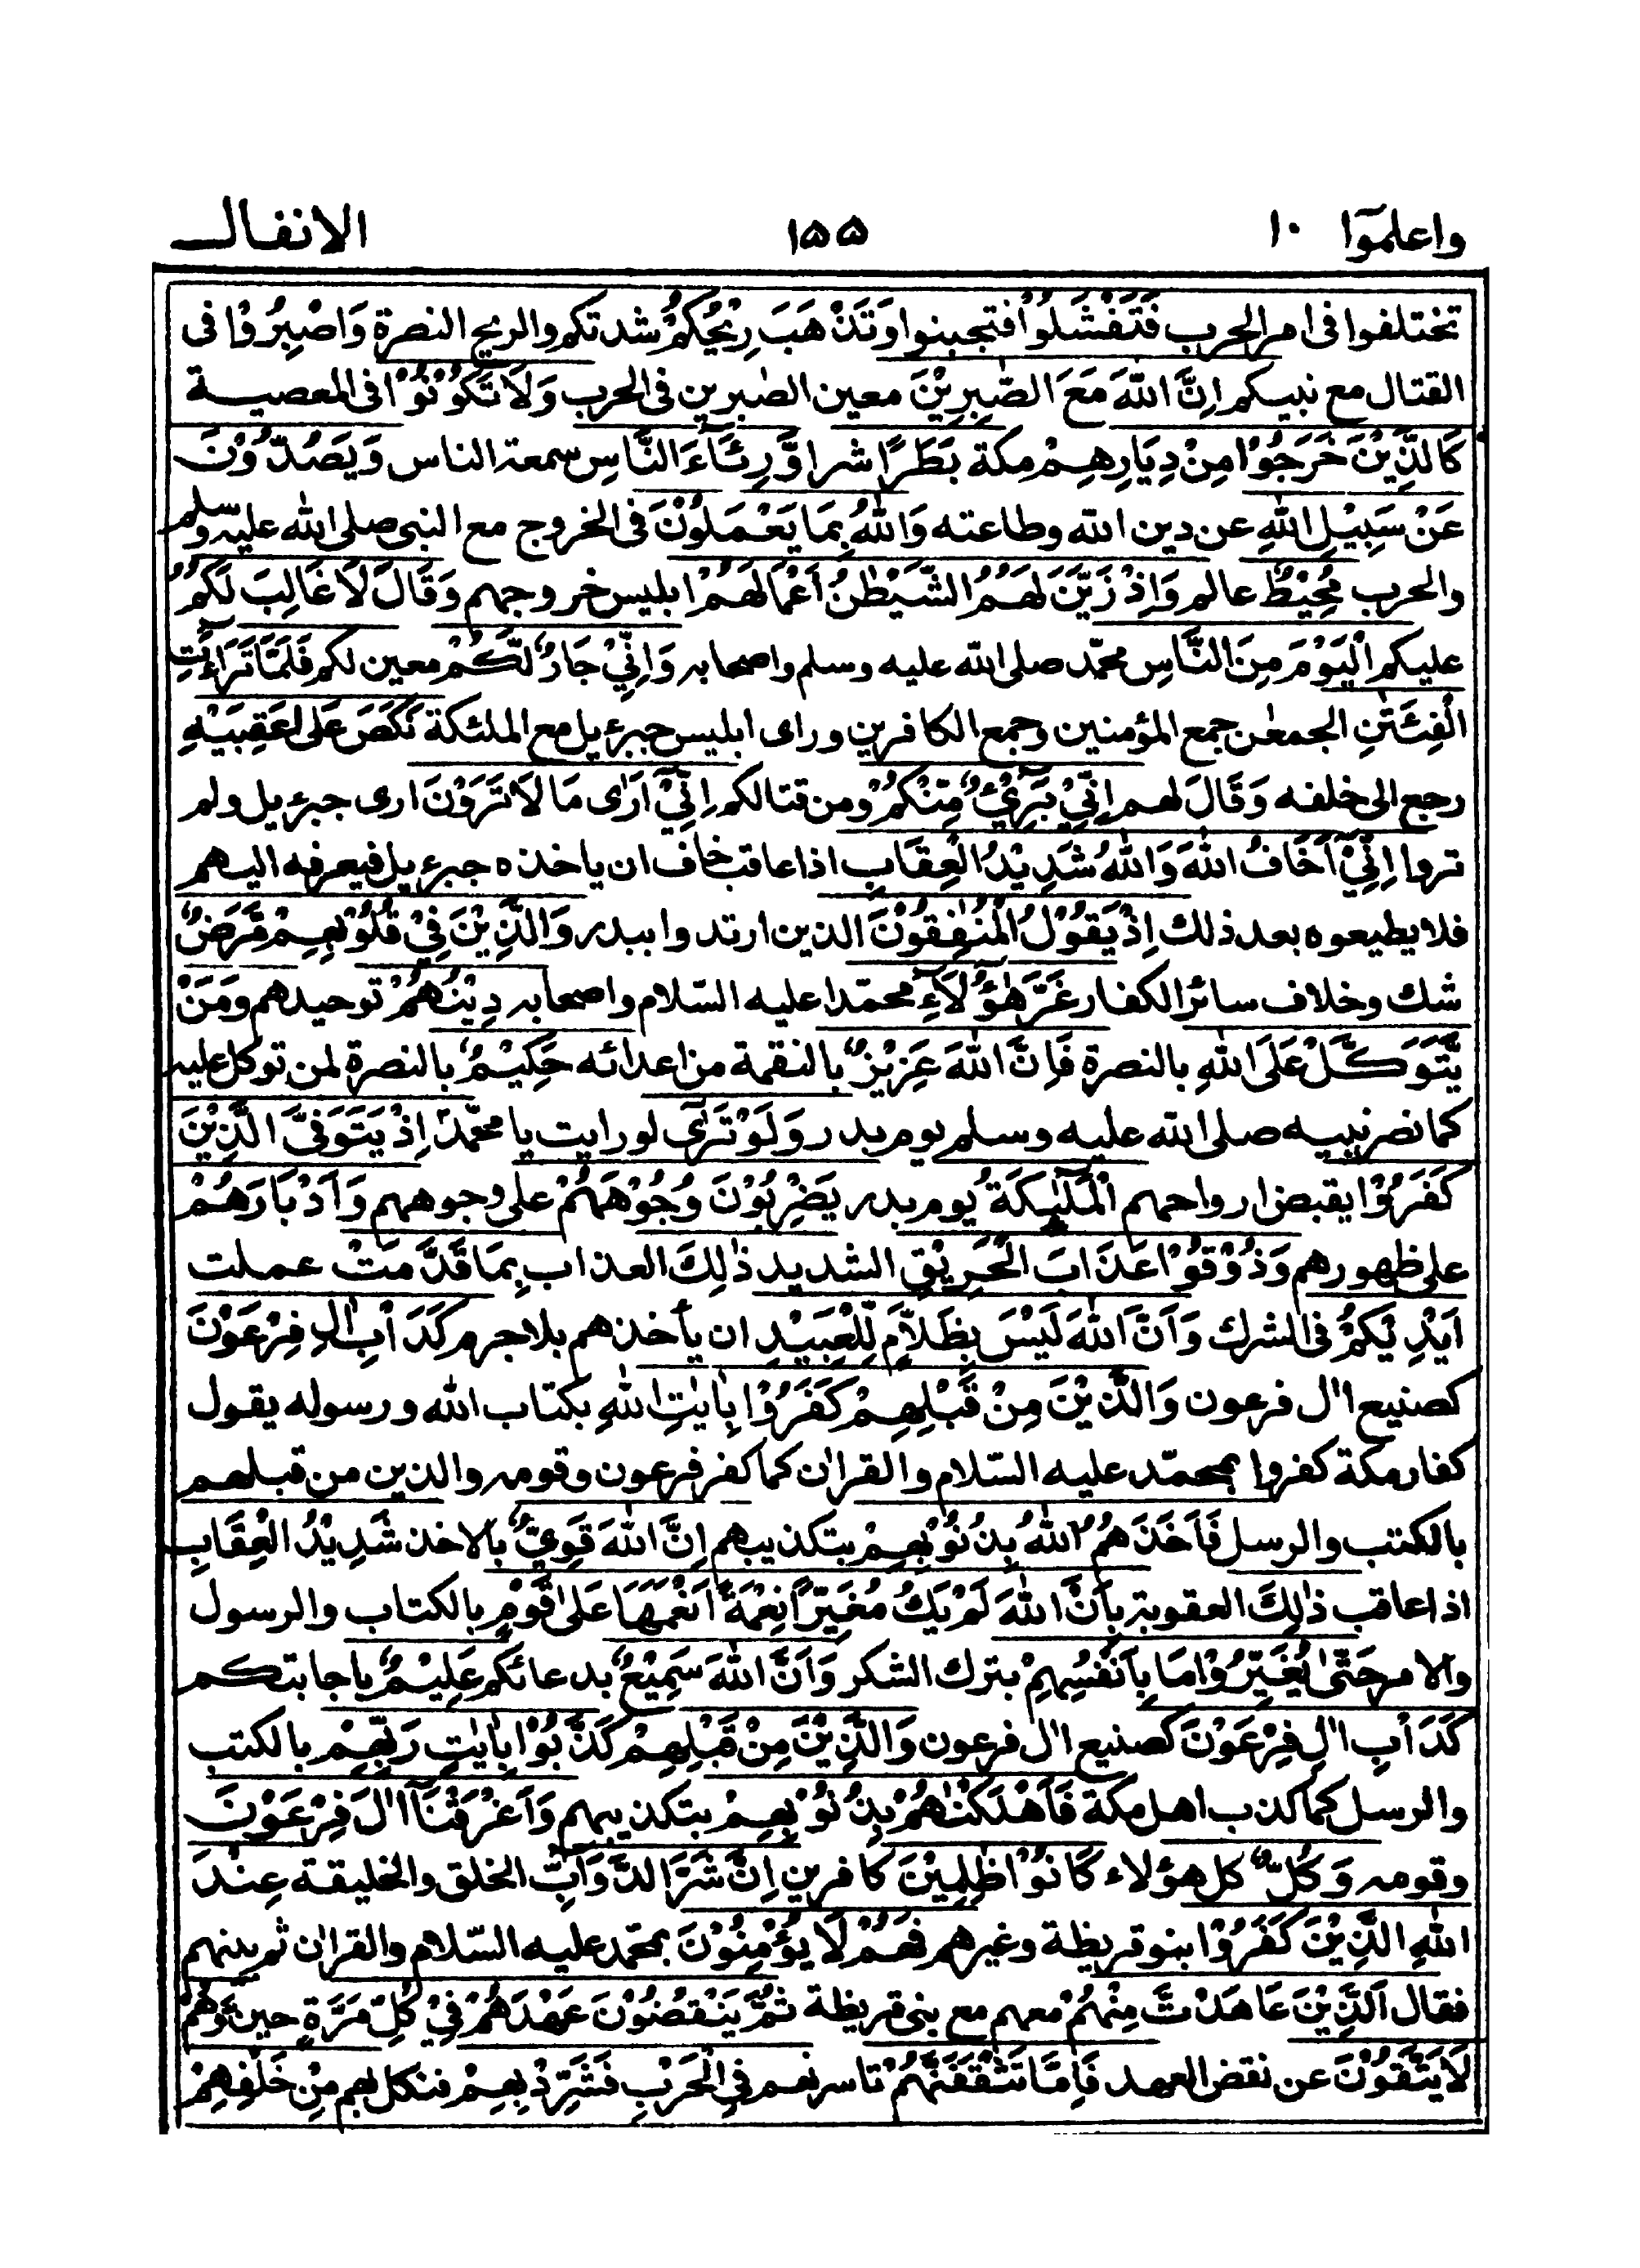 واعلموا ۱۰
۱۵۵
الانفال
تختلفوا فى امر الحرب فَتَفْشَلُوْا فتجبنوا وَتَذْهَبَ رِيْحُكُمْ شدتكم والريح النصرة وَاصْبِرُوْا فى
القتال مع نبيكم اِنَّ اللّٰهَ مَعَ الصّٰبِرِيْنَ معين الصٰبرين فى الحرب وَلَا تَكُوْنُوْا فى المعصية
كَالَّذِيْنَ خَرَجُوْا مِنْ دِيَارِهِمْ مكة بَطَرًا شرا وَّرِئَآءَ النَّاسِ سمعة الناس وَيَصُدُّوْنَ
عَنْ سَبِيْلِ اللّٰهِ عن دين الله وطاعته وَاللّٰهُ بِمَا يَعْمَلُوْنَ فى الخروج مع النبى صلى الله عليه وسلم
والحرب مُحِيْطٌ عالم وَاِذْ زَيَّنَ لَهُمُ الشَّيْطٰنُ اَعْمَالَهُمْ ابليس خروجهم وَقَالَ لَا غَالِبَ لَكُمُ
عليكم الْيَوْمَ مِنَ النَّاسِ محمّد صلى الله عليه وسلم واصحابه وَاِنِّيْ جَارٌ لَّكُمْ معين لكم فَلَمَّا تَرَآءَتِ
الْفِئَتٰنِ الجمعٰن جمع المؤمنين وجمع الكافرين وراى ابليس جبرءيل مع الملئكة نَكَصَ عَلٰى عَقِبَيْهِ
رجع الى خلفه وَقَالَ لهم اِنِّيْ بَرِيْٓءٌ مِّنْكُمْ ومن قتالكم اِنِّيْٓ اَرٰى مَا لَا تَرَوْنَ ارى جبرءيل ولم
تروا اِنِّيْٓ اَخَافُ اللّٰهَ وَاللّٰهُ شَدِيْدُ الْعِقَابِ اذا عاقب خاف ان ياخذه جبرءيل فيعرفه اليهم
فلا يطيعوه بعد ذلك اِذْ يَقُوْلُ الْمُنٰفِقُوْنَ الذين ارتدوا ببدر وَالَّذِيْنَ فِيْ قُلُوْبِهِمْ مَّرَضٌ
شك وخلاف سائر الكفار غَرَّ هٰٓؤُلَآءِ محمّدا عليه السّلام واصحابه دِيْنُهُمْ توحيدهم وَمَنْ
يَّتَوَكَّلْ عَلَى اللّٰهِ بالنصرة فَاِنَّ اللّٰهَ عَزِيْزٌ بالنقمة من اعدائه حَكِيْمٌ بالنصرة لمن توكل عليه
كما نصر نبيه صلى الله عليه وسلم يوم بدر وَلَوْ تَرٰٓى لو رايت يا محمّد اِذْ يَتَوَفَّى الَّذِيْنَ
كَفَرُوْا يقبض ارواحهم الْمَلٰٓئِكَةُ يوم بدر يَضْرِبُوْنَ وُجُوْهَهُمْ على وجوههم وَاَدْبَارَهُمْ
على ظهورهم وَذُوْقُوْا عَذَابَ الْحَرِيْقِ الشديد ذٰلِكَ العذاب بِمَا قَدَّمَتْ عملت
اَيْدِيْكُمْ فى الشرك وَاَنَّ اللّٰهَ لَيْسَ بِظَلَّامٍ لِّلْعَبِيْدِ ان يأخذهم بلا جرم كَدَاْبِ اٰلِ فِرْعَوْنَ
كصنيع اٰل فرعون وَالَّذِيْنَ مِنْ قَبْلِهِمْ كَفَرُوْا بِاٰيٰتِ اللّٰهِ بكتاب الله ورسوله يقول
كفار مكة كفروا بمحمّد عليه السّلام والقراٰن كما كفر فرعون وقومه والذين من قبلهم
بالكتب والرسل فَاَخَذَهُمُ اللّٰهُ بِذُنُوْبِهِمْ بتكذيبهم اِنَّ اللّٰهَ قَوِيٌّ بالاخذ شَدِيْدُ الْعِقَابِ
اذا عاقب ذٰلِكَ العقوبة بِاَنَّ اللّٰهَ لَمْ يَكُ مُغَيِّرًا نِّعْمَةً اَنْعَمَهَا عَلٰى قَوْمٍ بالكتاب والرسول
والامر حَتّٰى يُغَيِّرُوْا مَا بِاَنْفُسِهِمْ بترك الشكر وَاَنَّ اللّٰهَ سَمِيْعٌ بدعائكم عَلِيْمٌ باجابتكم
كَدَاْبِ اٰلِ فِرْعَوْنَ كصنيع اٰل فرعون وَالَّذِيْنَ مِنْ قَبْلِهِمْ كَذَّبُوْا بِاٰيٰتِ رَبِّهِمْ بالكتب
والرسل كما كذب اهل مكة فَاَهْلَكْنٰهُمْ بِذُنُوْبِهِمْ بتكذيبهم وَاَغْرَقْنَآ اٰلَ فِرْعَوْنَ
وقومه وَكُلٌّ كل هؤلاء كَانُوْا ظٰلِمِيْنَ كافرين اِنَّ شَرَّ الدَّوَآبِّ الخلق والخليقة عِنْدَ
اللّٰهِ الَّذِيْنَ كَفَرُوْا بنو قريظة وغيرهم فَهُمْ لَا يُؤْمِنُوْنَ بمحمّد عليه السّلام والقراٰن ثم بينهم
فقال اَلَّذِيْنَ عَاهَدْتَّ مِنْهُمْ معهم مع بنى قريظة ثُمَّ يَنْقُضُوْنَ عَهْدَهُمْ فِيْ كُلِّ مَرَّةٍ حين وَّهُمْ
لَا يَتَّقُوْنَ عن نقض العهد فَاِمَّا تَثْقَفَنَّهُمْ تاسرنهم فِي الْحَرْبِ فَشَرِّدْ بِهِمْ فنكل بهم مَّنْ خَلْفَهُمْ